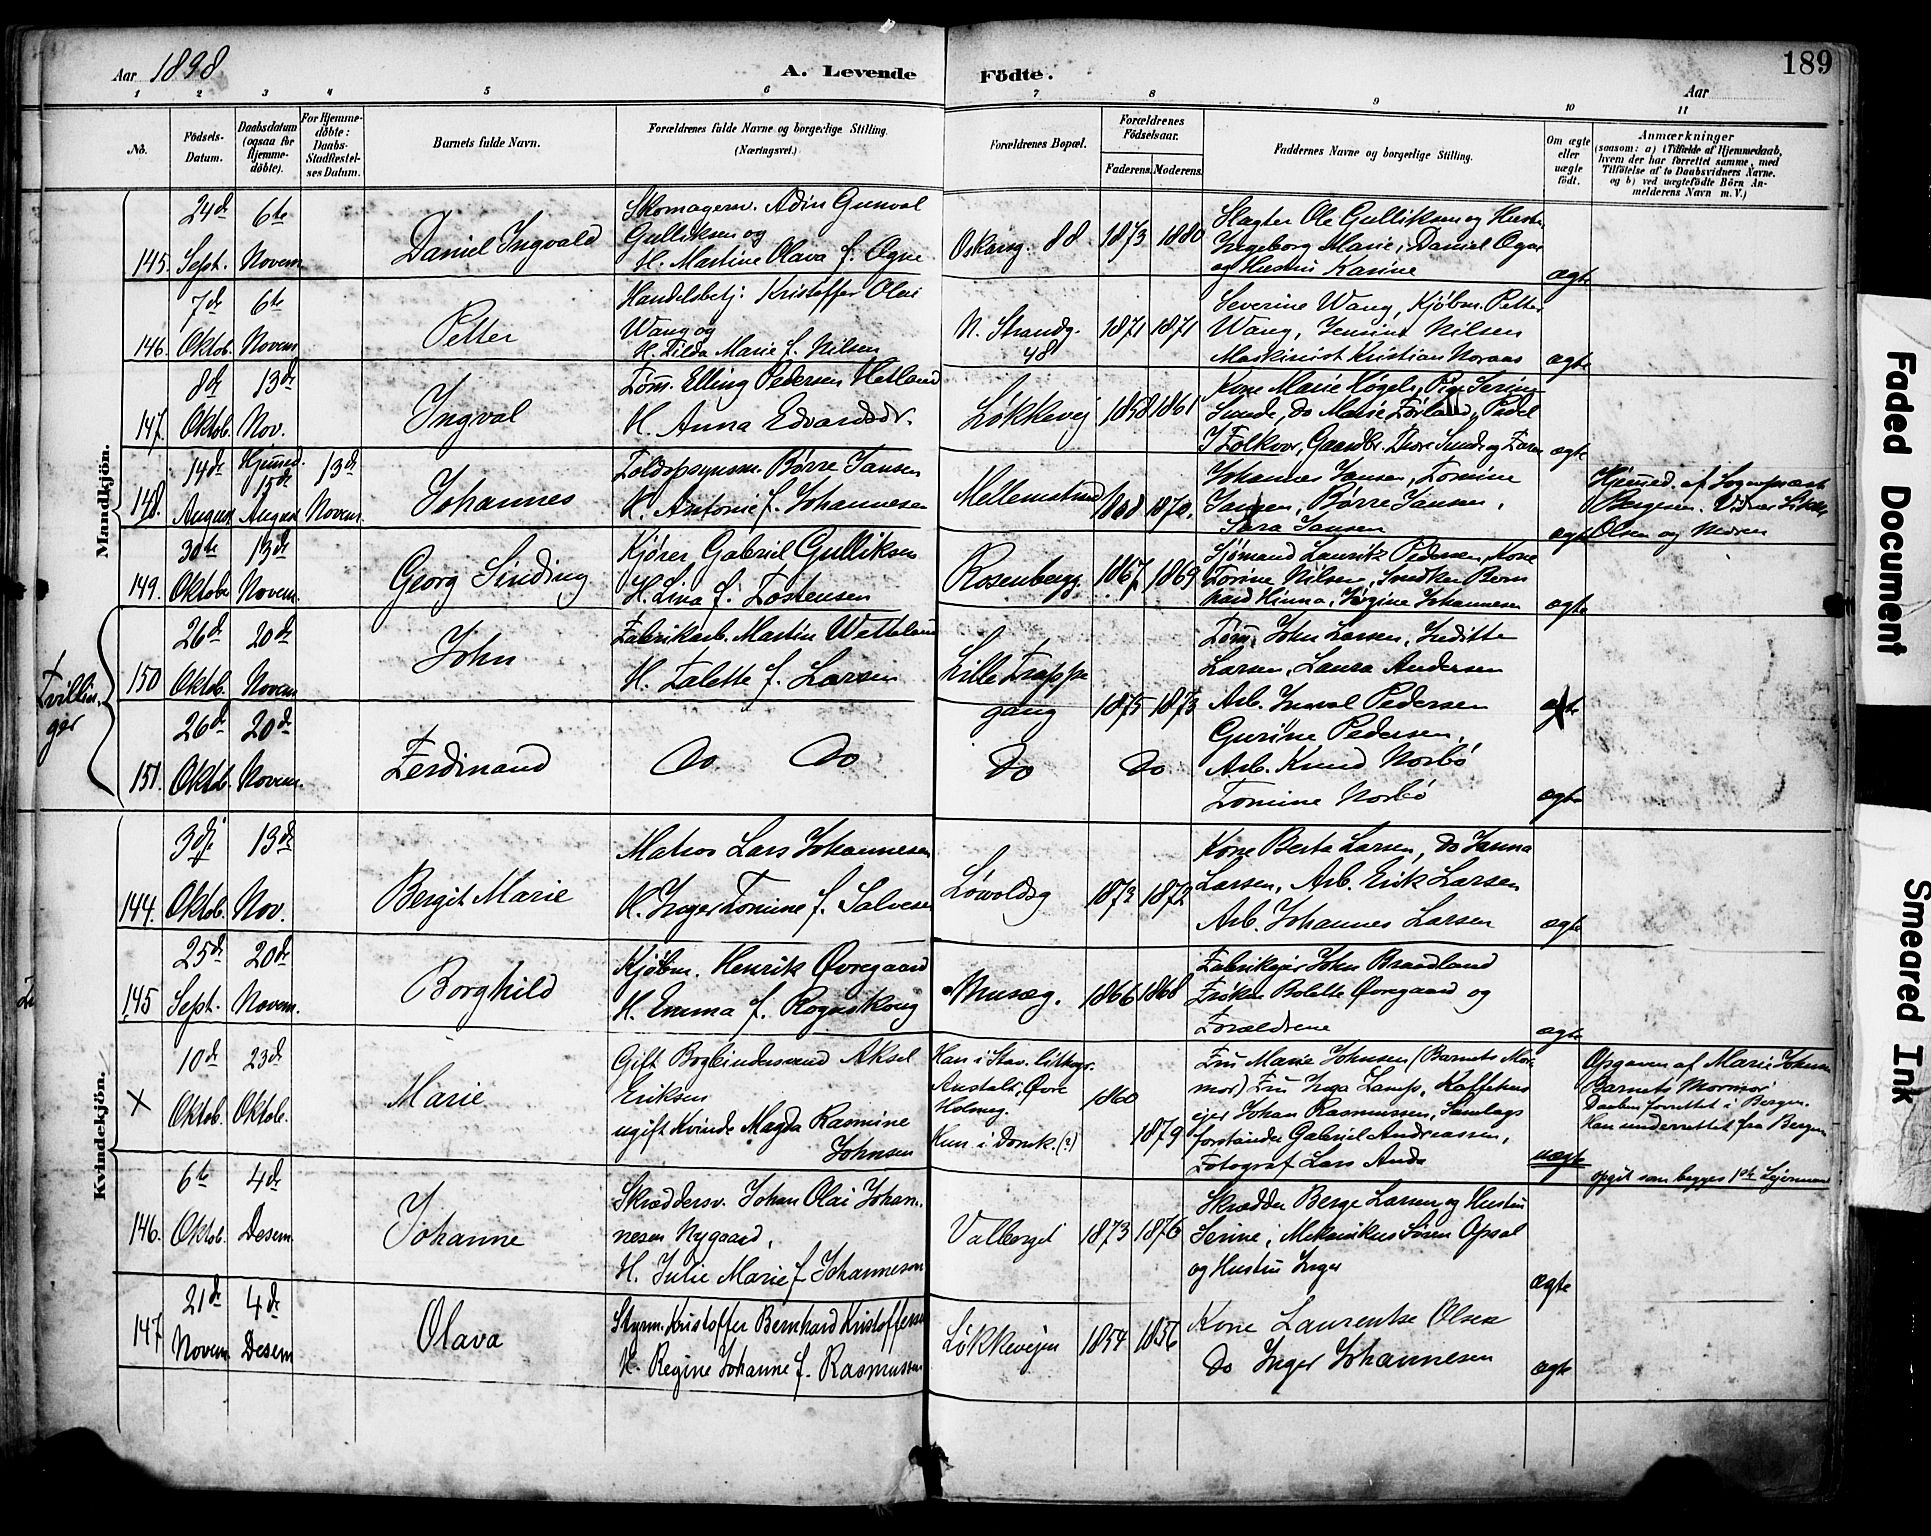 Aar 1898
A. Levende Födte.
189
Aar
1 2 3 4 5 6 7 8 9 10 11
No.
Födsels-Datum.
Daabsdatum (ogsaa for Hjemme-döbte).
For Hjemme-döbte: Daabs-Stadfæstel-ses Datum.
Barnets fulde Navn.
Forældrenes fulde Navne og borgerlige Stilling. (Næringsvei.)
Forældrenes Bopæl.
Forældrenes Födselsaar.
Faderens. Moderens.
Faddernes Navne og borgerlige Stilling.
Om ægte eller uægte födt.
Anmærkninger
(saasom: a) i Tilfælde af Hjemmedaab, hvem der har forrettet samme, med Tilföielse af to Daabsvidners Navne. og b) ved uægtefödte Börn An-melderens Navn m. V.)
Mandkjön.
145. 24de Sept. 6te Novem.
Daniel Ingvald
Skomagersv. Adin Gunval
Gulliksen og
H. Martine Olava f. Ogne
Oskarsg. 88 1873 1880
Slagter Ole Gulliksen og Hustr.
Ingeborg Marie, Daniel Ogne
og Hustru Karine
ægte
146. 7de Oktob. 6te Novem
Petter
Handelsbetj. Kristoffer Olai
Wang og
H. Tilda Marie f. Nilsen
N. Strandg. 48 1871 1871
Severine Wang, Kjøbm. Petter
Wang, Nilsen
Maskinist Kristian Noraas
ægte
147. 8de Oktob. 13de Nov.
Ingval
Tøm. Elling Pedersen Hetland
H. Anna Edvardsdr.
Løkkevej 1858 1861
Kone Marie Høgels, Pige Serine
Sunde, do Marie Førland, Pedel
Gaardbr. Tore Sunde og Faren
ægte
148. 14de August Hjemmed. 15de August 13de Novem.
Johannes
Toldopsynsm. Børre Jansen
H. Antonie f. Johannesen
Mellemstrand 1868 1870.
Johannes Jansen, Tomine
Jansen, Børre Jansen,
Sara Jansen
ægte
Hjemmed. af Sognepræst
Bergesen.
Olsen og Moren
149. 30te Oktober 13de Novem.
Georg Sinding
Kjører Gabriel Gulliksen
H. Lina f. Tostensen
Rosenbergg. 1867 1869
Sjømand Lauritz Pedersen, Kone
Torine Nilsen, Snedker Bern
hard Hinna, Jørgine Johannesen
ægte
Tvillin-
ger
150 26de Oktob. 20de Novem
John
Fabrikarb. Martin Wetteland
H. Talette f. Larsen
Lille Trappe
gang 1875 1873
Tøm. John Larsen, Inditte
Larsen, Laura Andersen
Arb. Ingval Pedersen
ægte
151. 26de Oktob. 20de Novem.
Ferdinand
Do Do
Do Do
Gurine Pedersen,
Arb. Knud Norbø
Tomine Norbø
ægte
Kvindekjön.
144. 3dje Oktob. 13de Nov.
Bergit Marie
Matros Lars Johannesen
H. Inger Tomine f. Salvesen
Løvoldsg 1872 1872
Kone Berta Larsen, Do Janna
Larsen, Arb. Erik Larsen
Arb. Johannes Larsen
ægte
145 25de Sept. 20de Novem.
Borghild
Kjøbm. Henrik Øvregaard
H. Emma f. Rognskoug
Musæg. 1866 1868
Fabrikejer John Braadland
Frøken Bolette Øvregaard og
Forældrene
ægte
X 10de Oktob. 23de Oktob.
Marie
Gift Bogbindersvend Aksel
Eriksen
ugift Kvinde Magda Rasmine
Johnsen
Han i Stav.
Anstalt, Øvre
Holmeg.
Hun i Donsk. (?)
1860 1879
Fru Marie Johnsen (Barnets Mor-
mor) Fru Inga Kaffehus
ejer Johan Rasmussen, Samlags
forstander Gabriel Andreassen,
Fotograf Lars Anda
uægte
Opgaven af Marie Johnsen
Barnets Mormor
Daaben forrettet i Bergen.
Han underrettet fra Bergen
opgit som begges 1ste Lejermaal
146. 6te Oktob. 4de Desem
Johanne
Skræddersv. Johan Olai Johan-
nesen Nygaard,
H. Julie Marie f. Johannesen
Valberget 1873 1876
Skrædder Berge Larsen og Hustru
Serine, Mekanikus Søren Opsal
og Hustru Inger
ægte
147 21de Novem 4de Desem
Olava
Styrm. Kristoffer Bernhard Kristoffersen
H. Regine Johanne f. Rasmussen
Løkkevejen 1854 1856
Kone Laurentse Olsen
Do Inger Johannesen
ægte
Faded Document
Smeared Ink